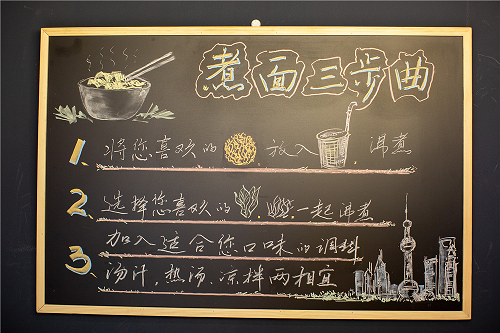 煮面三步曲
1、将您喜欢的 放入 沸煮
2、选择您喜欢的 、 一起沸煮
3、加入适合您口味的调料
汤汁,热汤、凉拌两相宜